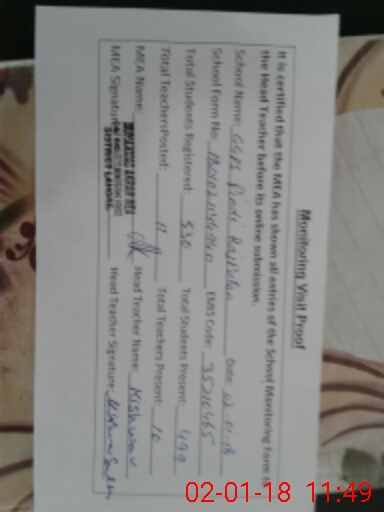 Monitoring Visit Proof
It is certified that the MEA has shown all entries of the School Monitoring Form to
the Head Teacher before its online submission.
School Name: GGPS Date: 02-01-18
School Form No: EMIS Code: 35210465
Total Students Registered: 530 Total Students Present: 499
Total Teachers Posted: 11 Total Teachers Present: 10
MEA Name: Head Teacher Name: Kishwar
MEA Signature: Head Teacher Signature:
DISTRICT LAHORE
02-01-18 11:49